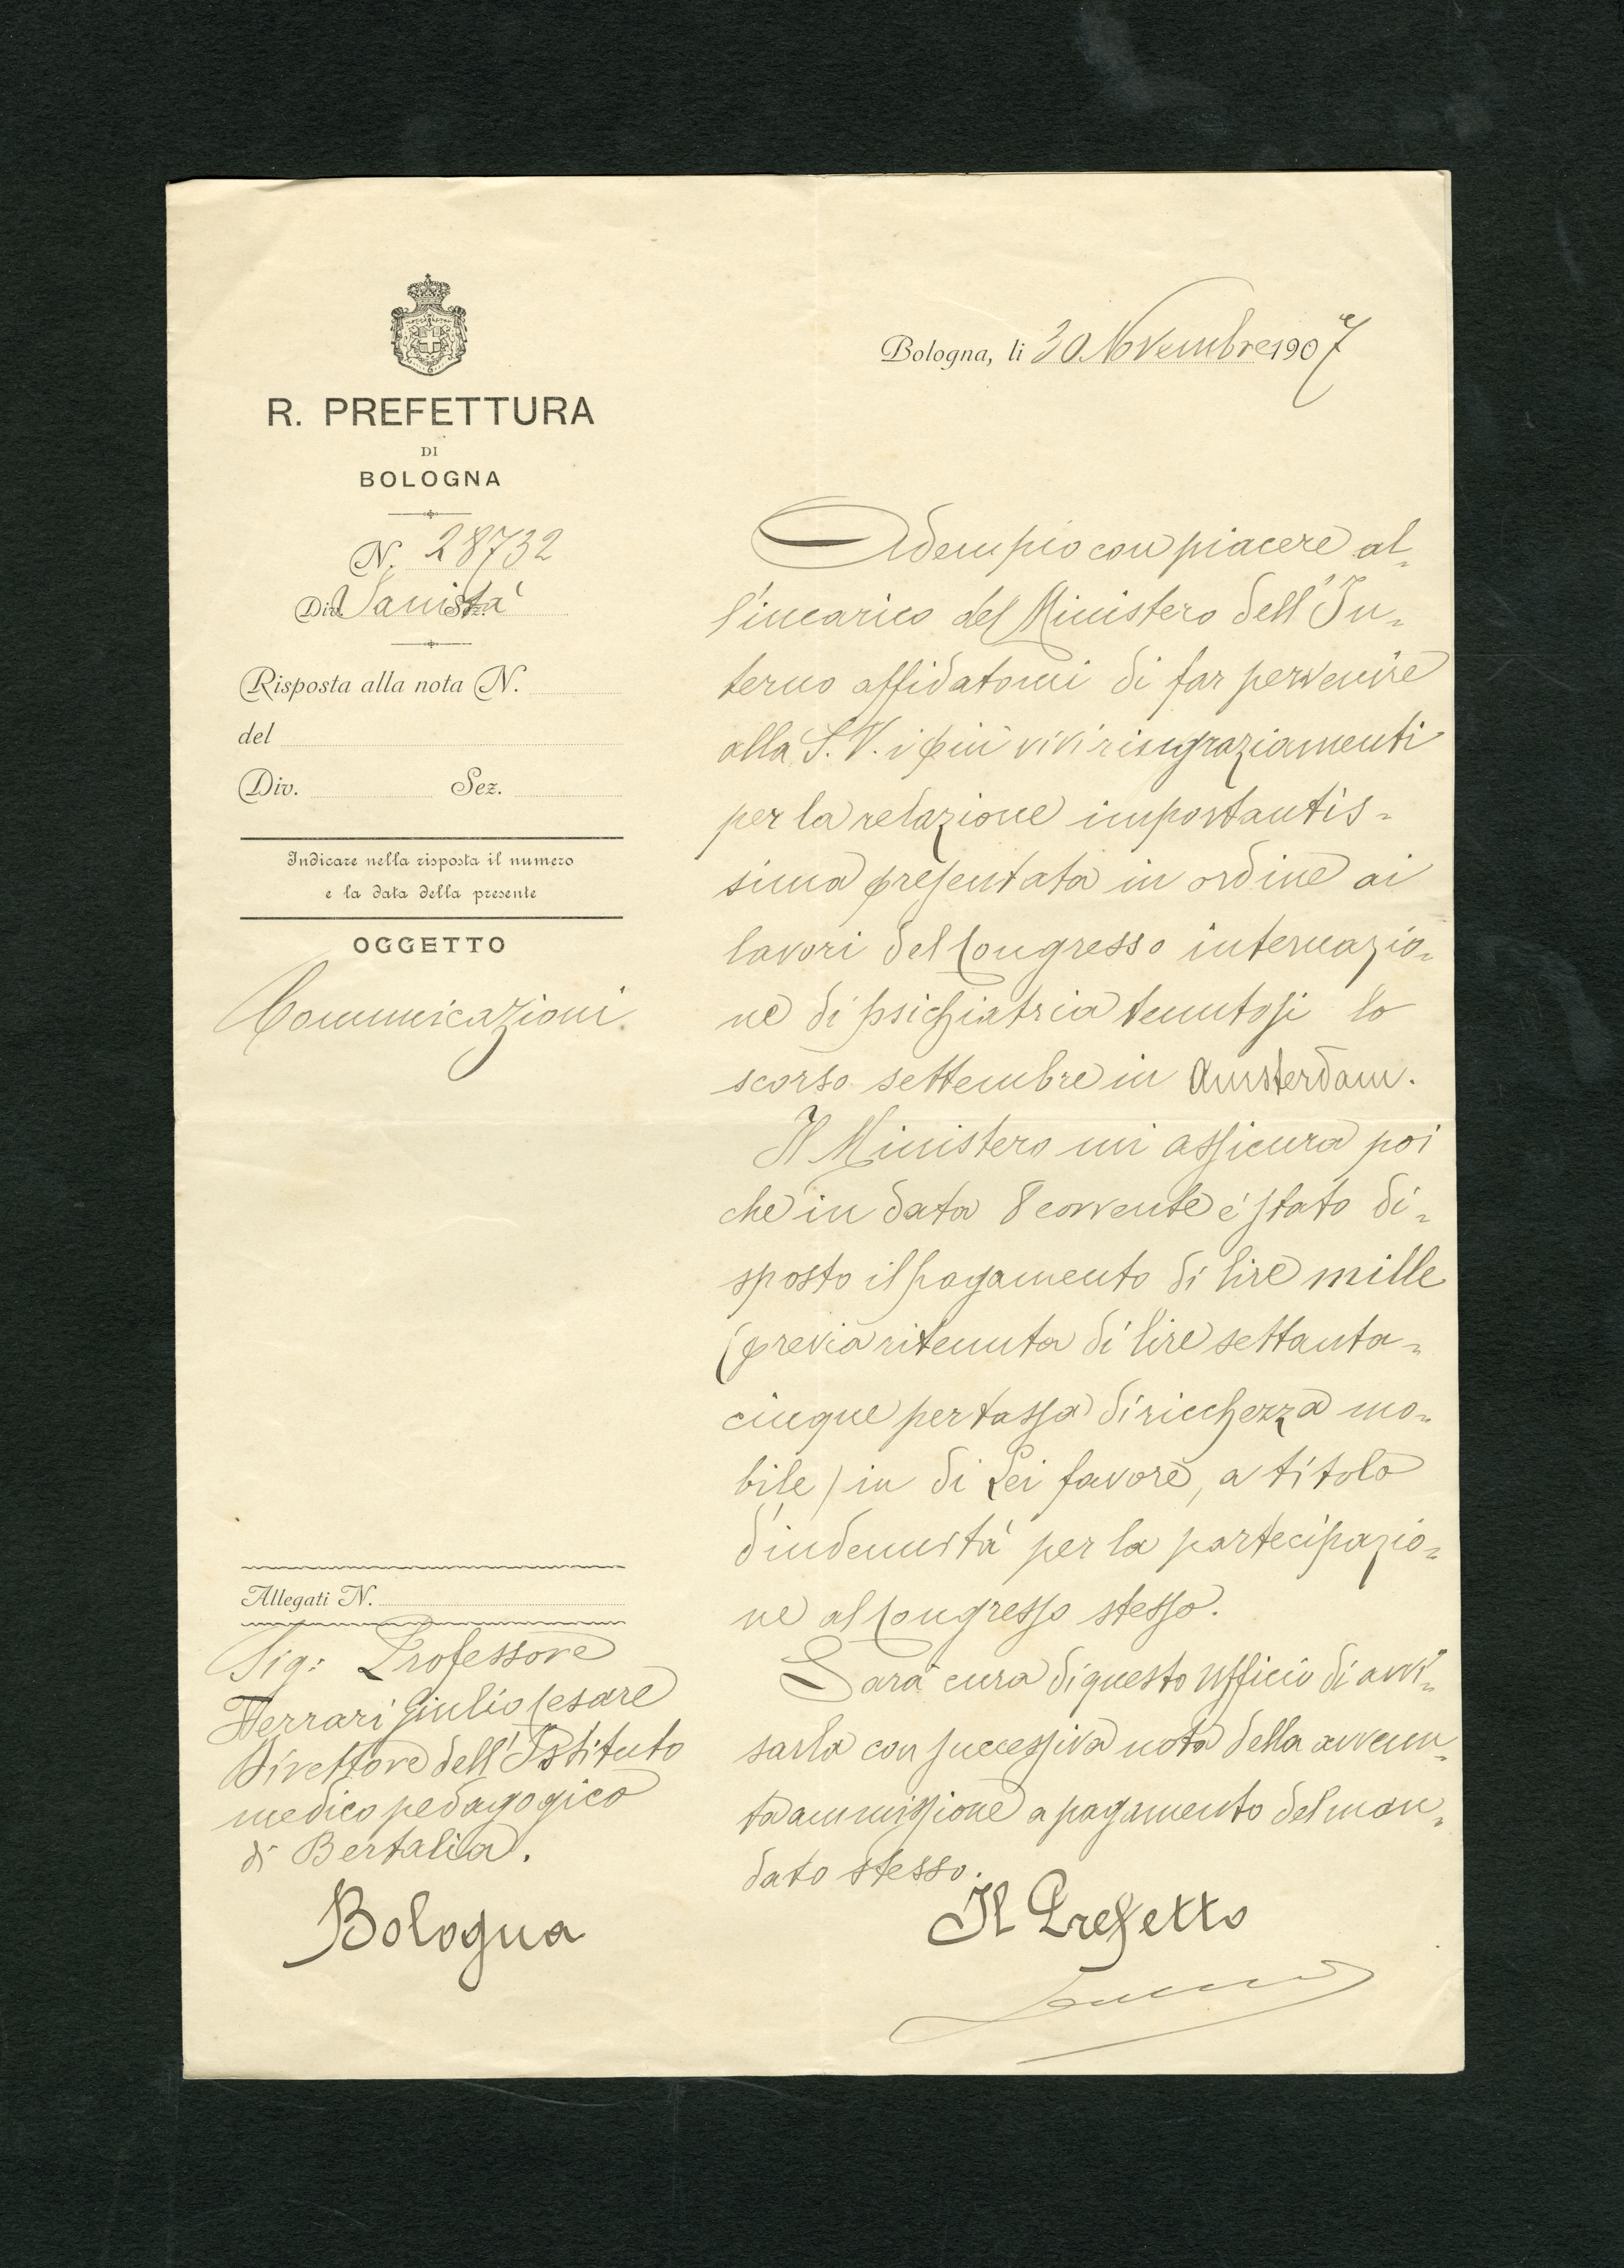 R. PREFETTURA
DI
BOLOGNA
N. 28732
Div. Sanità Sez.
Risposta alla nota N.
del
Div. Sez.
Indicare nella risposta il numero
e la data della presente
OGGETTO
Comunicazioni
Allegati N.
Sig: Professore
Ferrari Giulio Cesare
Direttore dell'Istituto
medico pedagogico
di Bertalia.
Bologna
Bologna, li 30 Novembre 1907
Adempio con piacere al-
l'incarico del Ministero dell'In-
terno affidatomi di far pervenire
alla S. V. i più vivi ringraziamenti
per la relazione importantis-
sima presentata in ordine ai
lavori del Congresso internazio-
ne di psichiatria tenutosi lo
scorso settembre in Amsterdam.
Il Ministero mi assicura poi
che in data 8 corrente é stato di-
sposto il pagamento di lire mille
(previa ritenuta di lire settanta-
cinque per tassa di ricchezza mo-
bile) in di Lei favore, a titolo
d'indennità per la partecipazio-
ne al Congresso stesso.
Sarà cura di questo Ufficio di avvi-
sarla con successiva nota della avvenu-
ta ammissione a pagamento del man-
dato stesso.
Il Prefetto